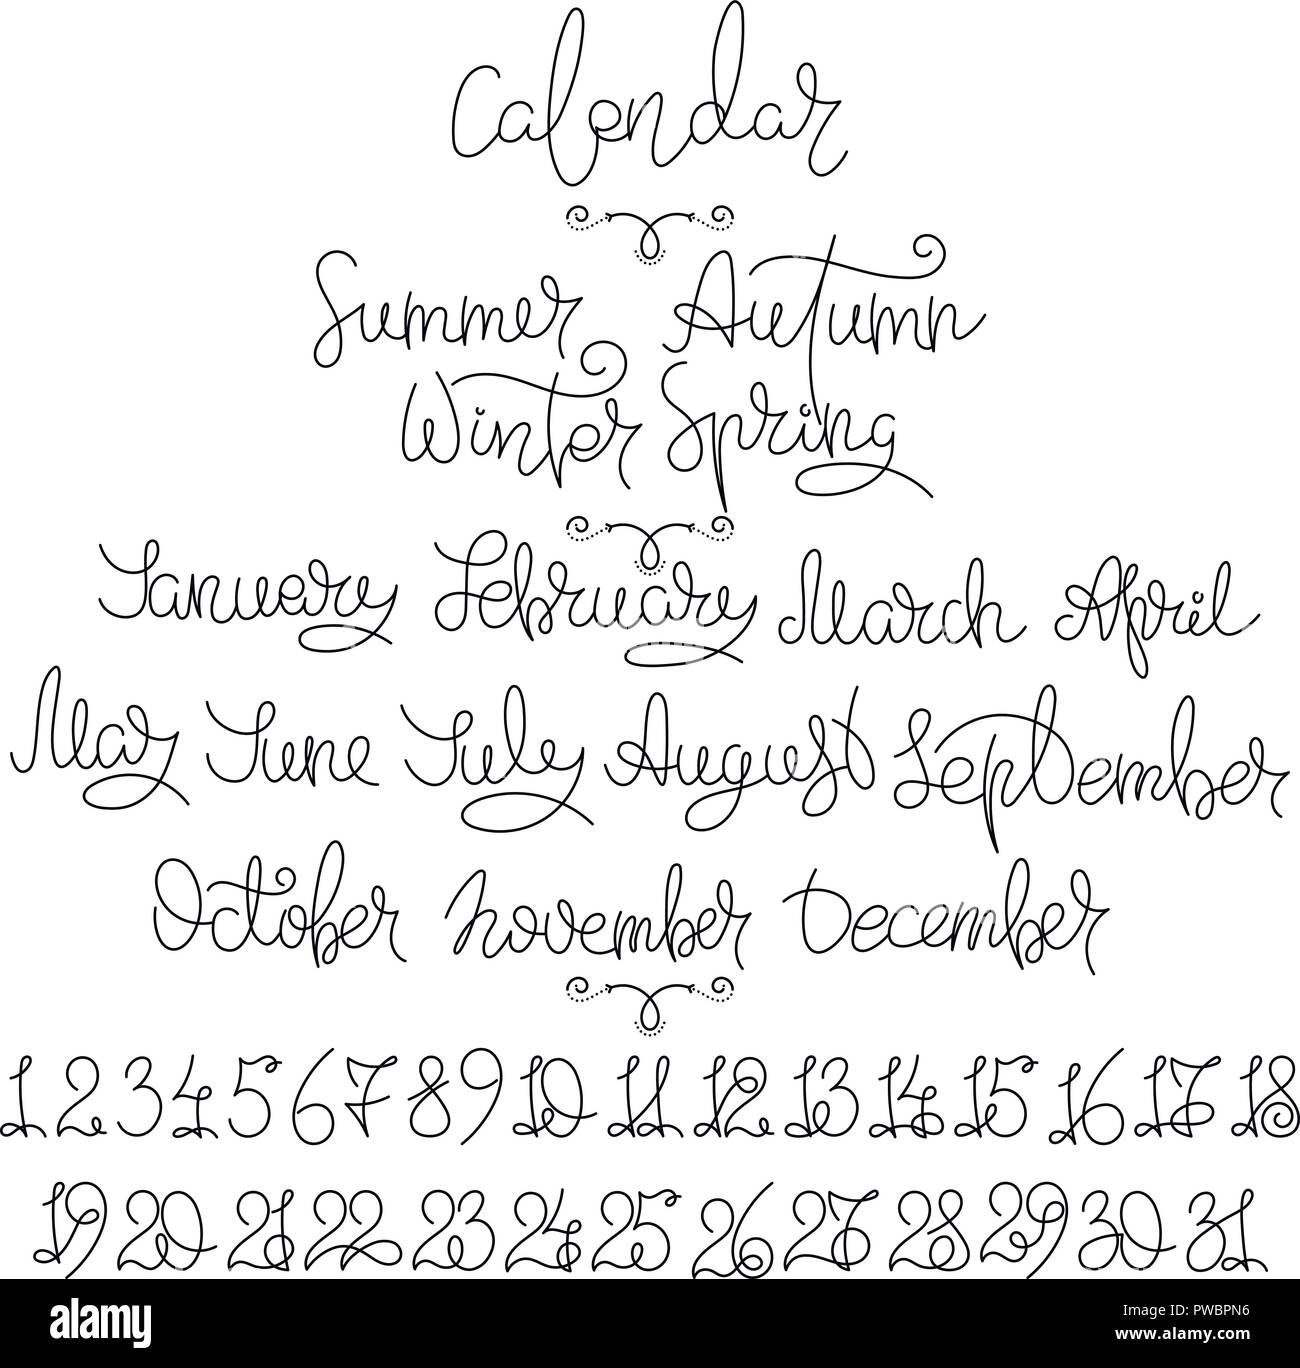 Calendar
Summer Autumn
Winter Spring
January February March April
May June July August September
October November December
1 2 3 4 5 6 7 8 9 10 11 12 13 14 15 16 17 18
19 20 21 22 23 24 25 26 27 28 29 30 31
alamy
Image ID: PWBPN6
www.alamy.com